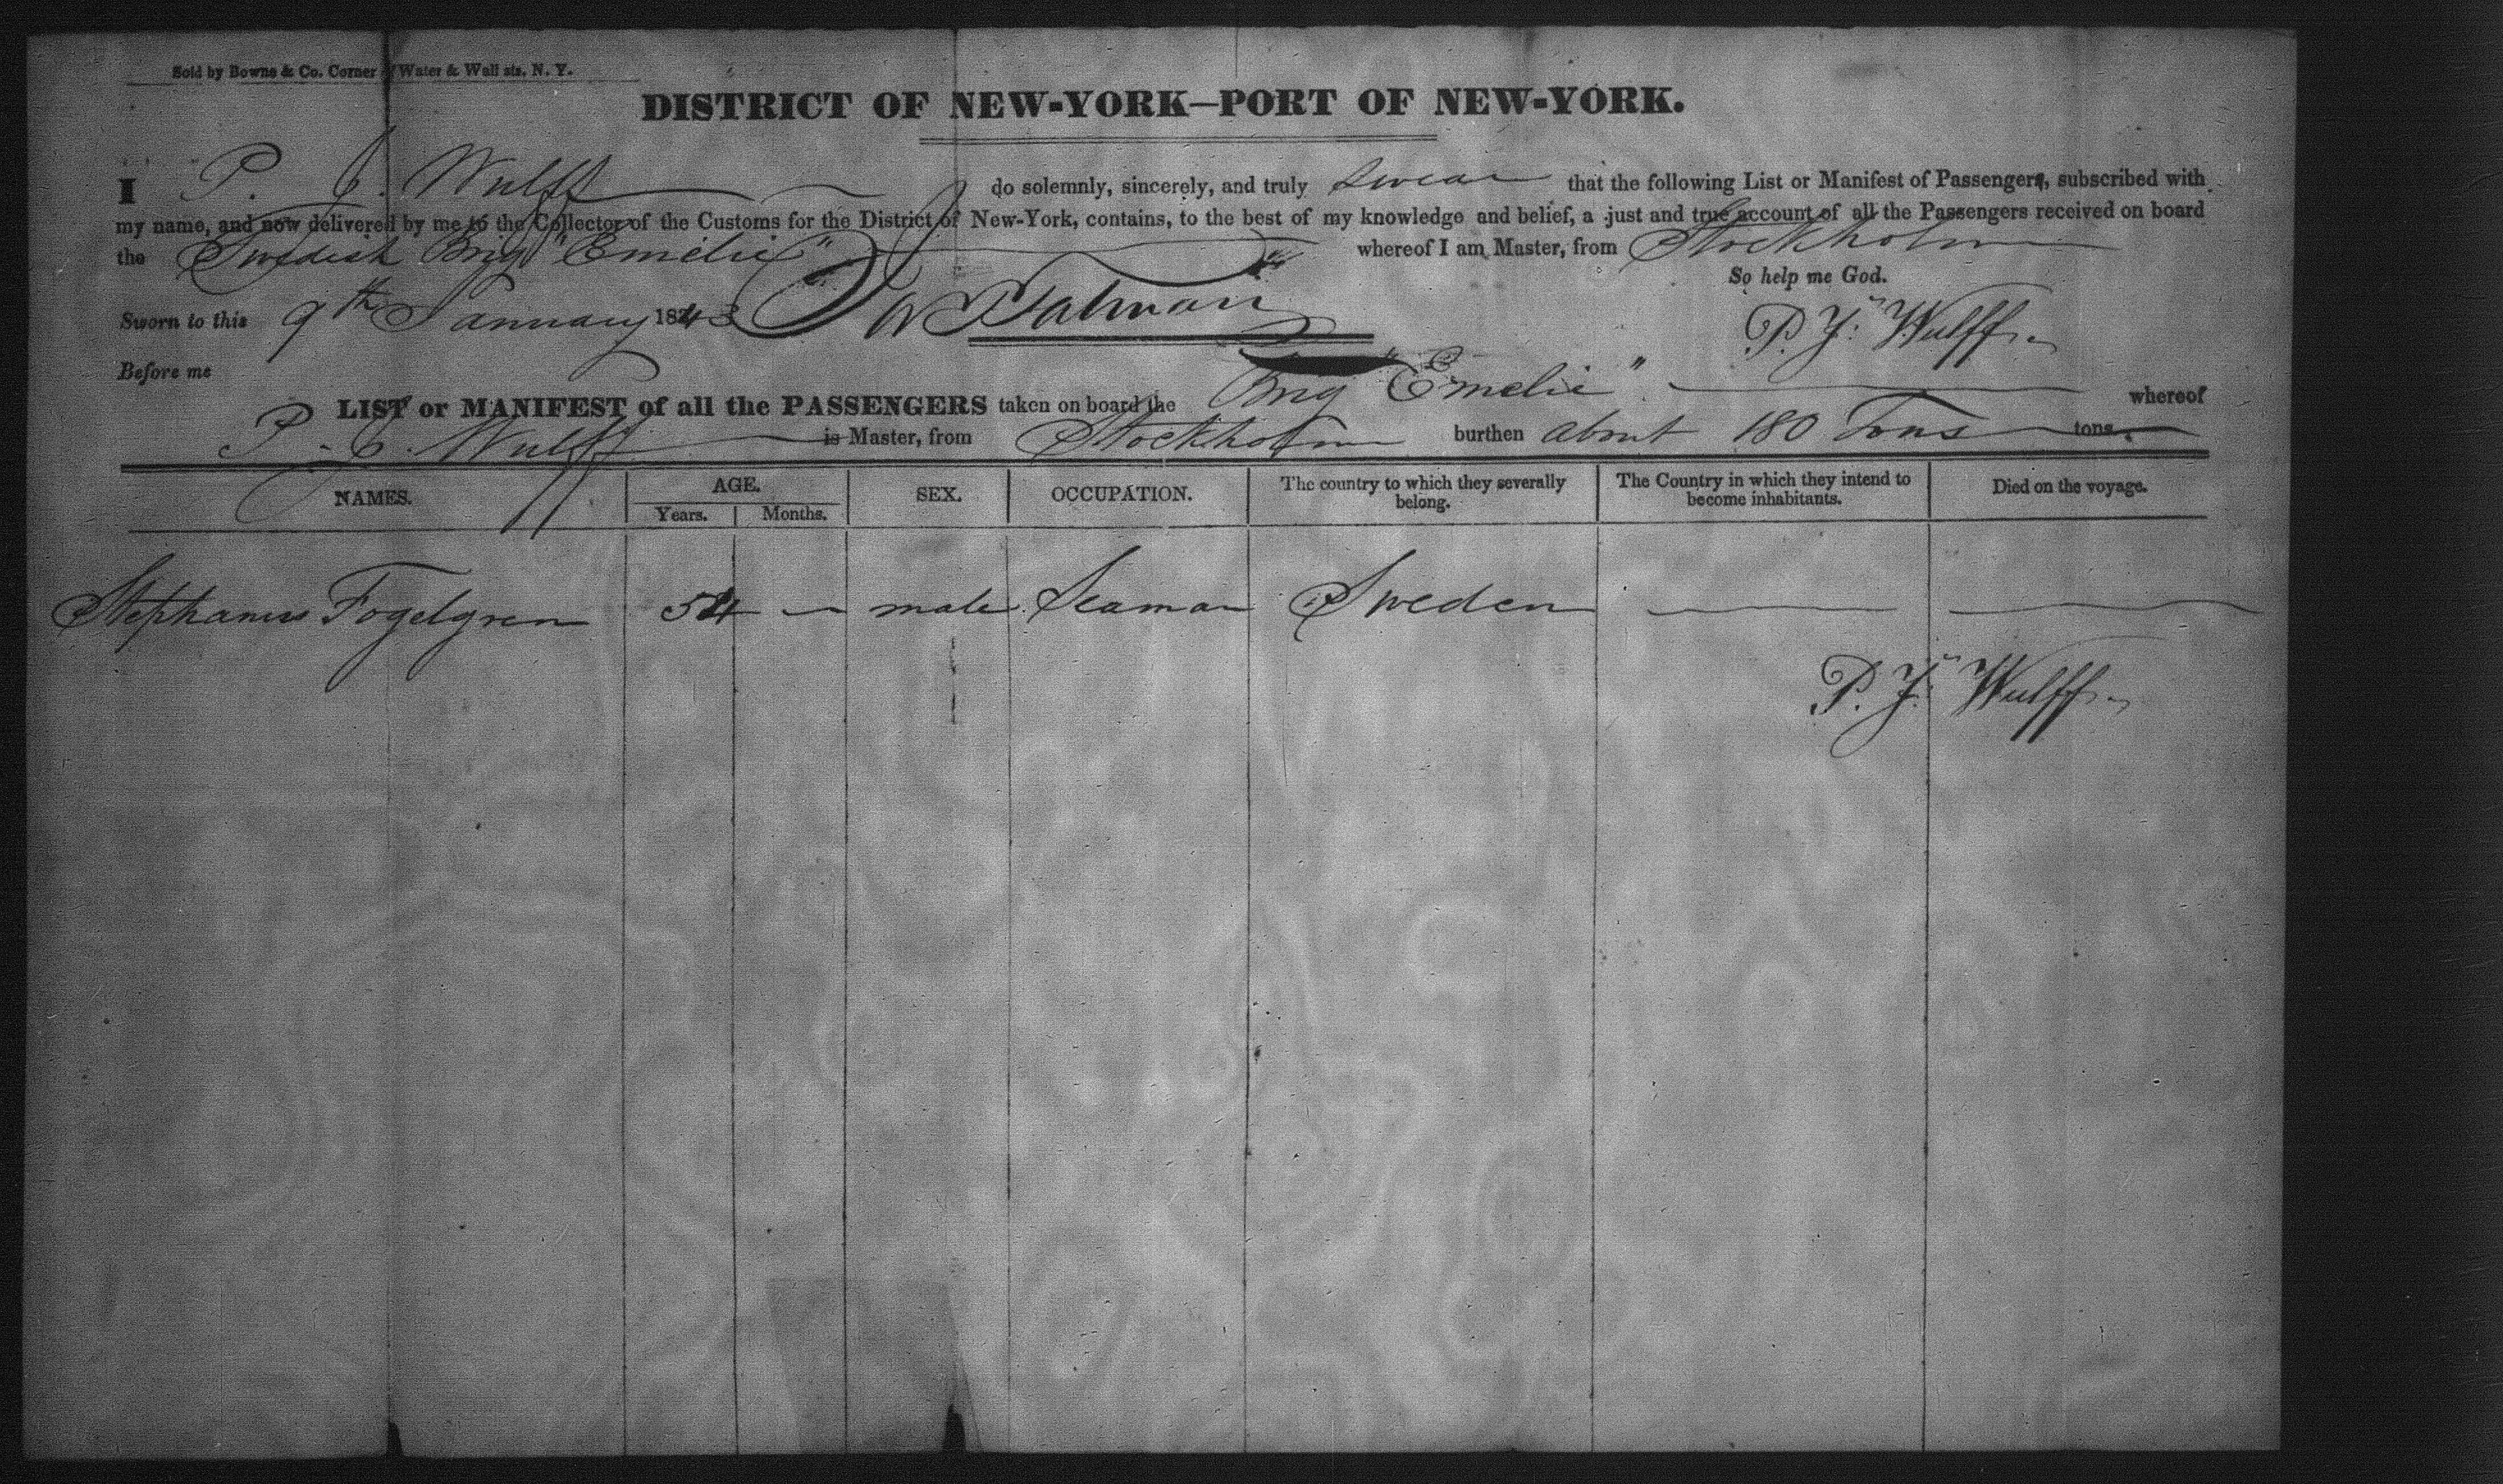 Sold by Bowne & Co. Corner of Water & Wall sts. N. Y.
DISTRICT OF NEW-YORK—PORT OF NEW-YORK.
I P. J. Wulff do solemnly, sincerely, and truly swear that the following List or Manifest of Passengers, subscribed with
my name, and now delivered by me to the Collector of the Customs for the District of New-York, contains, to the best of my knowledge and belief, a just and true account of all the Passengers received on board
the Swedish Brig "Emelie" whereof I am Master, from Stockholm
So help me God.
Sworn to this 9th January 1843 Talman P. J. Wulff
Before me
LIST or MANIFEST of all the PASSENGERS taken on board the Brig "Emelie" whereof
P. J. Wulff is Master, from Stockholm burthen about 180 Tons tons.
NAMES. AGE. SEX. OCCUPATION. The country to which they severally belong. The Country in which they intend to become inhabitants. Died on the voyage.
Years. Months.
Stephanus Fogelgren 54 — male Seaman Sweden — —
P. J. Wulff